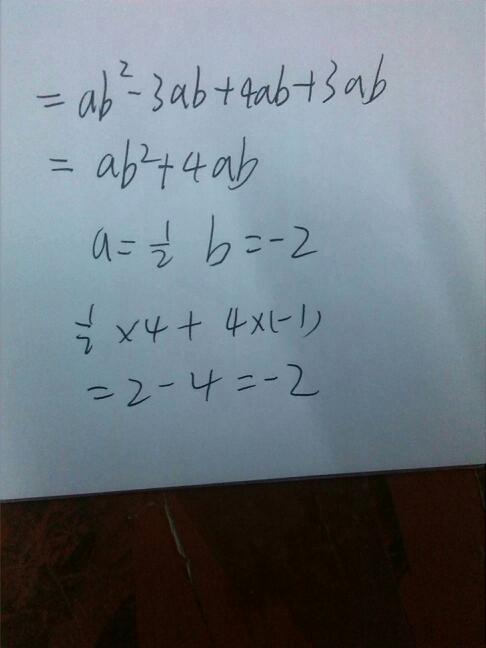 = ab² - 3ab + 4ab + 3ab
= ab² + 4ab
a = 1/2 b = -2
1/2 × 4 + 4×(-1)
= 2 - 4 = -2